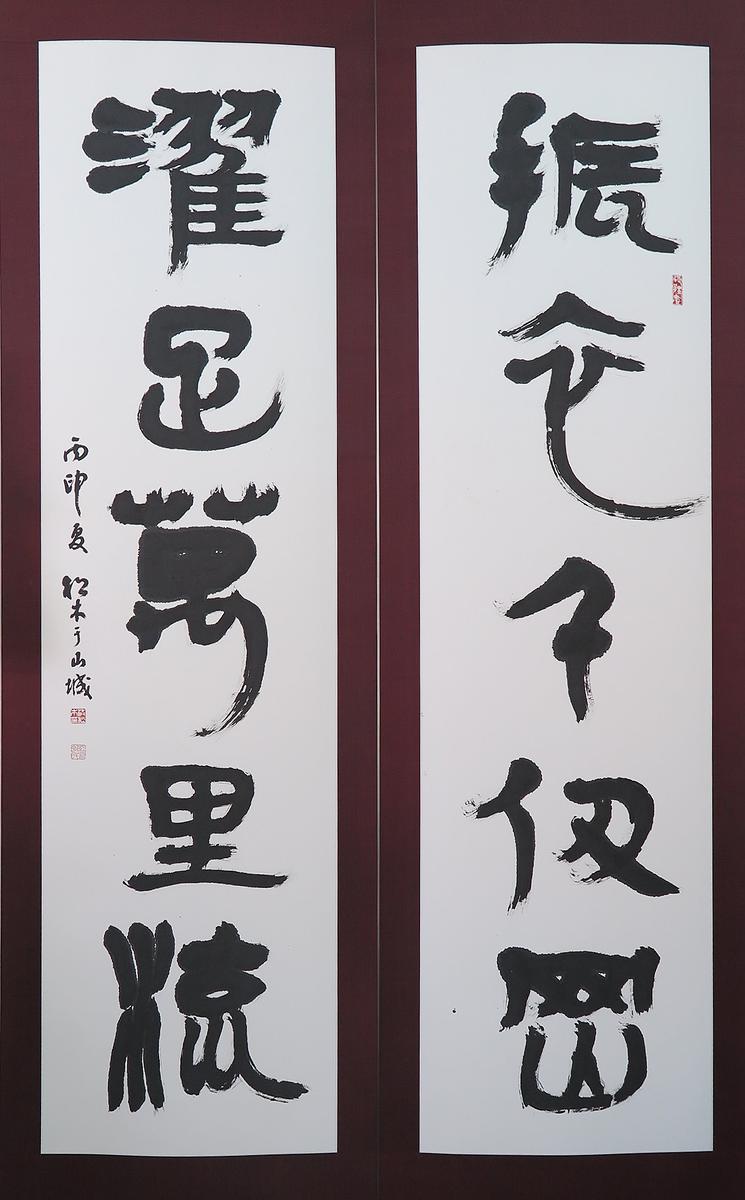 振衣千仞岡
濯足萬里流
丙申夏 松木于山城